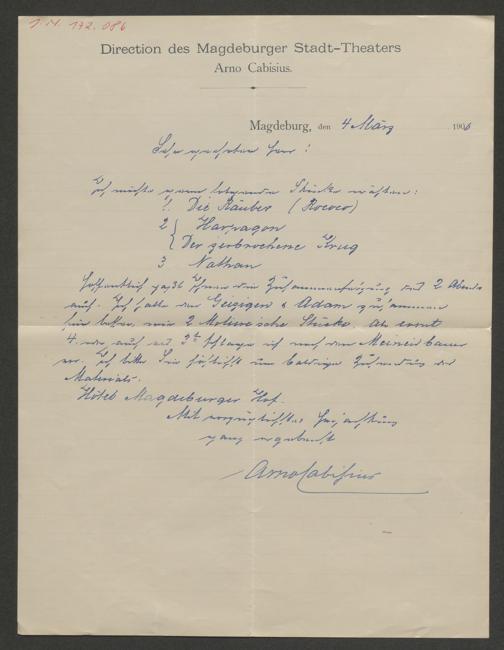 I.N. 172.086
Direction des Magdeburger Stadt-Theaters
Arno Cabisius.
Magdeburg, den 4 März 1906
Sehr geehrter Herr!
Ich möchte gerne folgende Stücke wählen:
1 Die Räuber (Rococo)
2 Harpagon
Der zerbrochene Krug
3 Nathan
Hoffentlich paßt Ihnen die Zusammenfassung auf 2 Abende
auf. Ich halte den Geizigen & Adam zusammen
für besser, wie 2 Molière'sche Stücke. Als
4. auf ich noch den Meineidbauer
vor. Ich bitte Sie höflichst um baldige Zusendung des
Materials.
Hôtel Magdeburger Hof.
Mit vorzüglichster Hochachtung
ganz ergebenst
Arno Cabisius